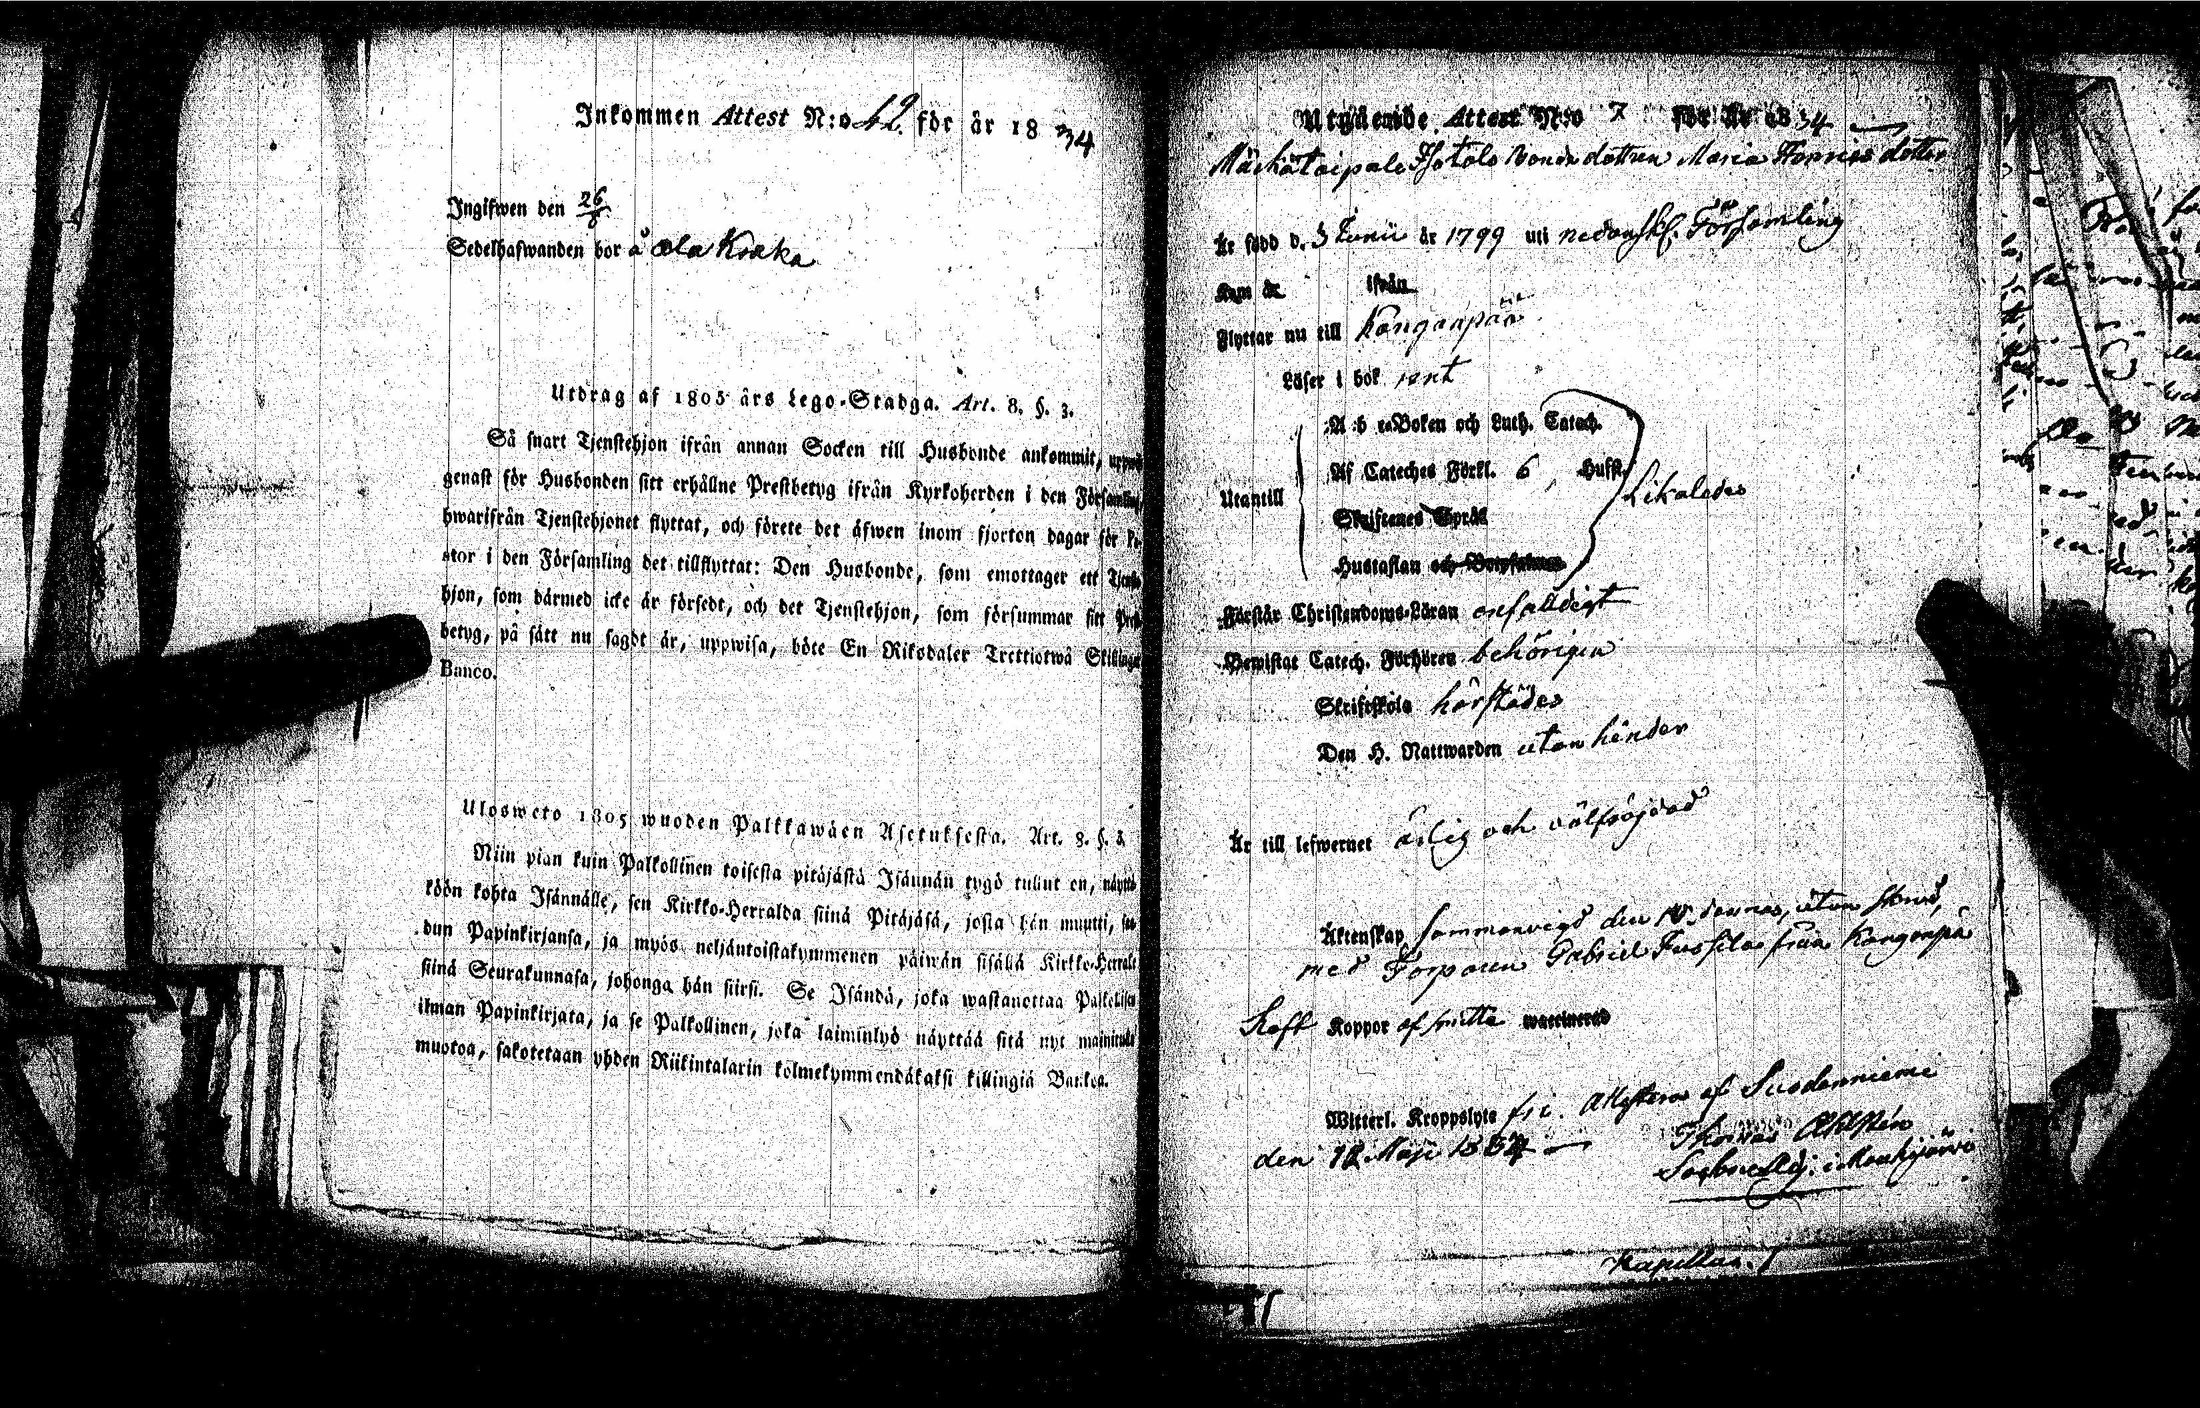 Inkommen Attest N:o 62. för år 1834
Ingifwen den 26/6
Sedelhafwanden bor å Ala Kraka
Utdrag af 1805 års Lego-Stadga. Art. 8. §. 3.
Så snart Tjenstehjon ifrån annan Socken till Husbonde ankommit,
genast för Husbonden sitt erhållne Prestbetyg ifrån Kyrkoherden i den
hwarifrån Tjenstehjonet flyttat, och förete det äfwen inom fjorton dagar för
stor i den Församling det tillflyttat: Den Husbonde, som emottager ett
hjon, som därmed icke är försedt, och det Tjenstehjon, som försummar sitt
betyg, på sätt nu sagdt är, uppwisa, böte En Riksdaler Trettiotwå Skillingar
Banco.
Ulosweto 1805 wuoden Palkkawäen Asetuksesta. Art. 8. §. 3
Niin pian kuin Palkollinen toisesta pitäjästä Isännän tygö tullut on,
köön kohta Isännälle, sen Kirkko-Herralda siinä Pitäjäsä, josta hän muutti,
dun Papinkirjansa, ja myös neljäntoistakymmenen päiwän sisällä Kirkko-Herrale
siinä Seurakunnasa, johonga hän siirsi. Se Isändä, joka wastanottaa
ilman Papinkirjata, ja se Palkollinen, joka laiminlyö näyttää sitä nyt mainitulla
muotoa, sakotetaan yhden Riikintalarin kolmekymmendäkaksi killingiä Bankoa.
Utgående Attest N:o 7 för År 1834
Bonde dottren Maria dotter
Är född d. 3 Junii år 1799 uti nedanskr. Församling
Kom år ifrån
Flyttar nu till Kangonpää
Läser i bok rent
A-b c-Boken och Luth. Catech.
Af Cateches Förkl. 6, Husfl.
Utantill Likaledes
Skriftenes Språk
Hustaflan och
Förstår Christendoms-Läran enfaldigt
Bewistat Catech. Förhören behörigen
Skriftskola härstädes
Den H. Nattwarden utan hinder
Är till lefwernet ärlig och
Äktenskap Sammanvigd den
med Torparen Gabriel från Kangonpä
Haft Koppor af smitta waccinerad
Witterl. Kroppslyte fri. Attesterar af Suodenniemi
den 12 Maji 1834
Thomas
i Mouhijärvi
Kapellan.